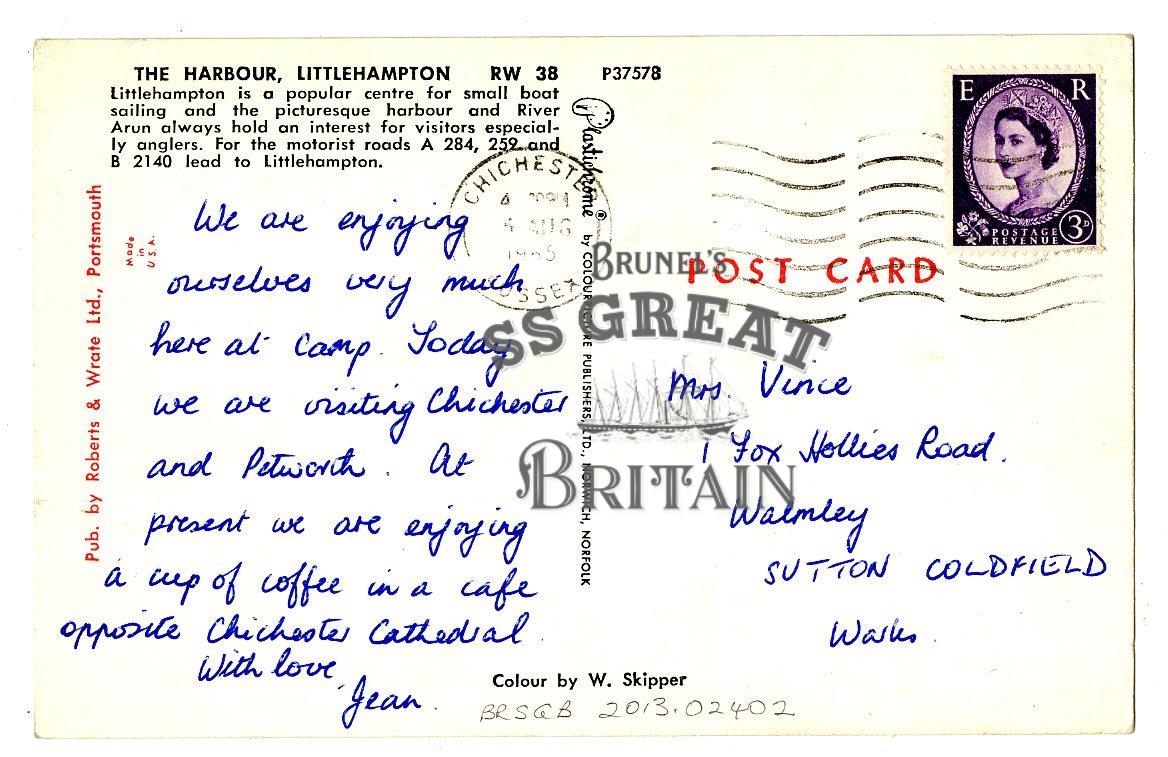 THE HARBOUR, LITTLEHAMPTON RW 38 P37578
Littlehampton is a popular centre for small boat
sailing and the picturesque harbour and River
Arun always hold an interest for visitors especial-
ly anglers. For the motorist roads A 284, 259 and
B 2140 lead to Littlehampton.
Pub. by Roberts & Wrate Ltd., Portsmouth
Made
in
U.S.A.
We are enjoying
ourselves very much
here at Camp. Today
we are visiting Chichester
and Petworth. At
present we are enjoying
a cup of coffee in a cafe
opposite Chichester Cathedral.
With love,
Jean.
CHICHESTER
AUG
SUSSEX
Plastichrome ® by COLOUR PUBLISHERS, LTD., NORWICH, NORFOLK
E R
POSTAGE
REVENUE
3D
POST CARD
BRUNEL'S
SS GREAT
BRITAIN
Mrs. Vince
1 Fox Hollies Road.
Walmley
SUTTON COLDFIELD
Warks.
Colour by W. Skipper
BRSGB 2013.02402